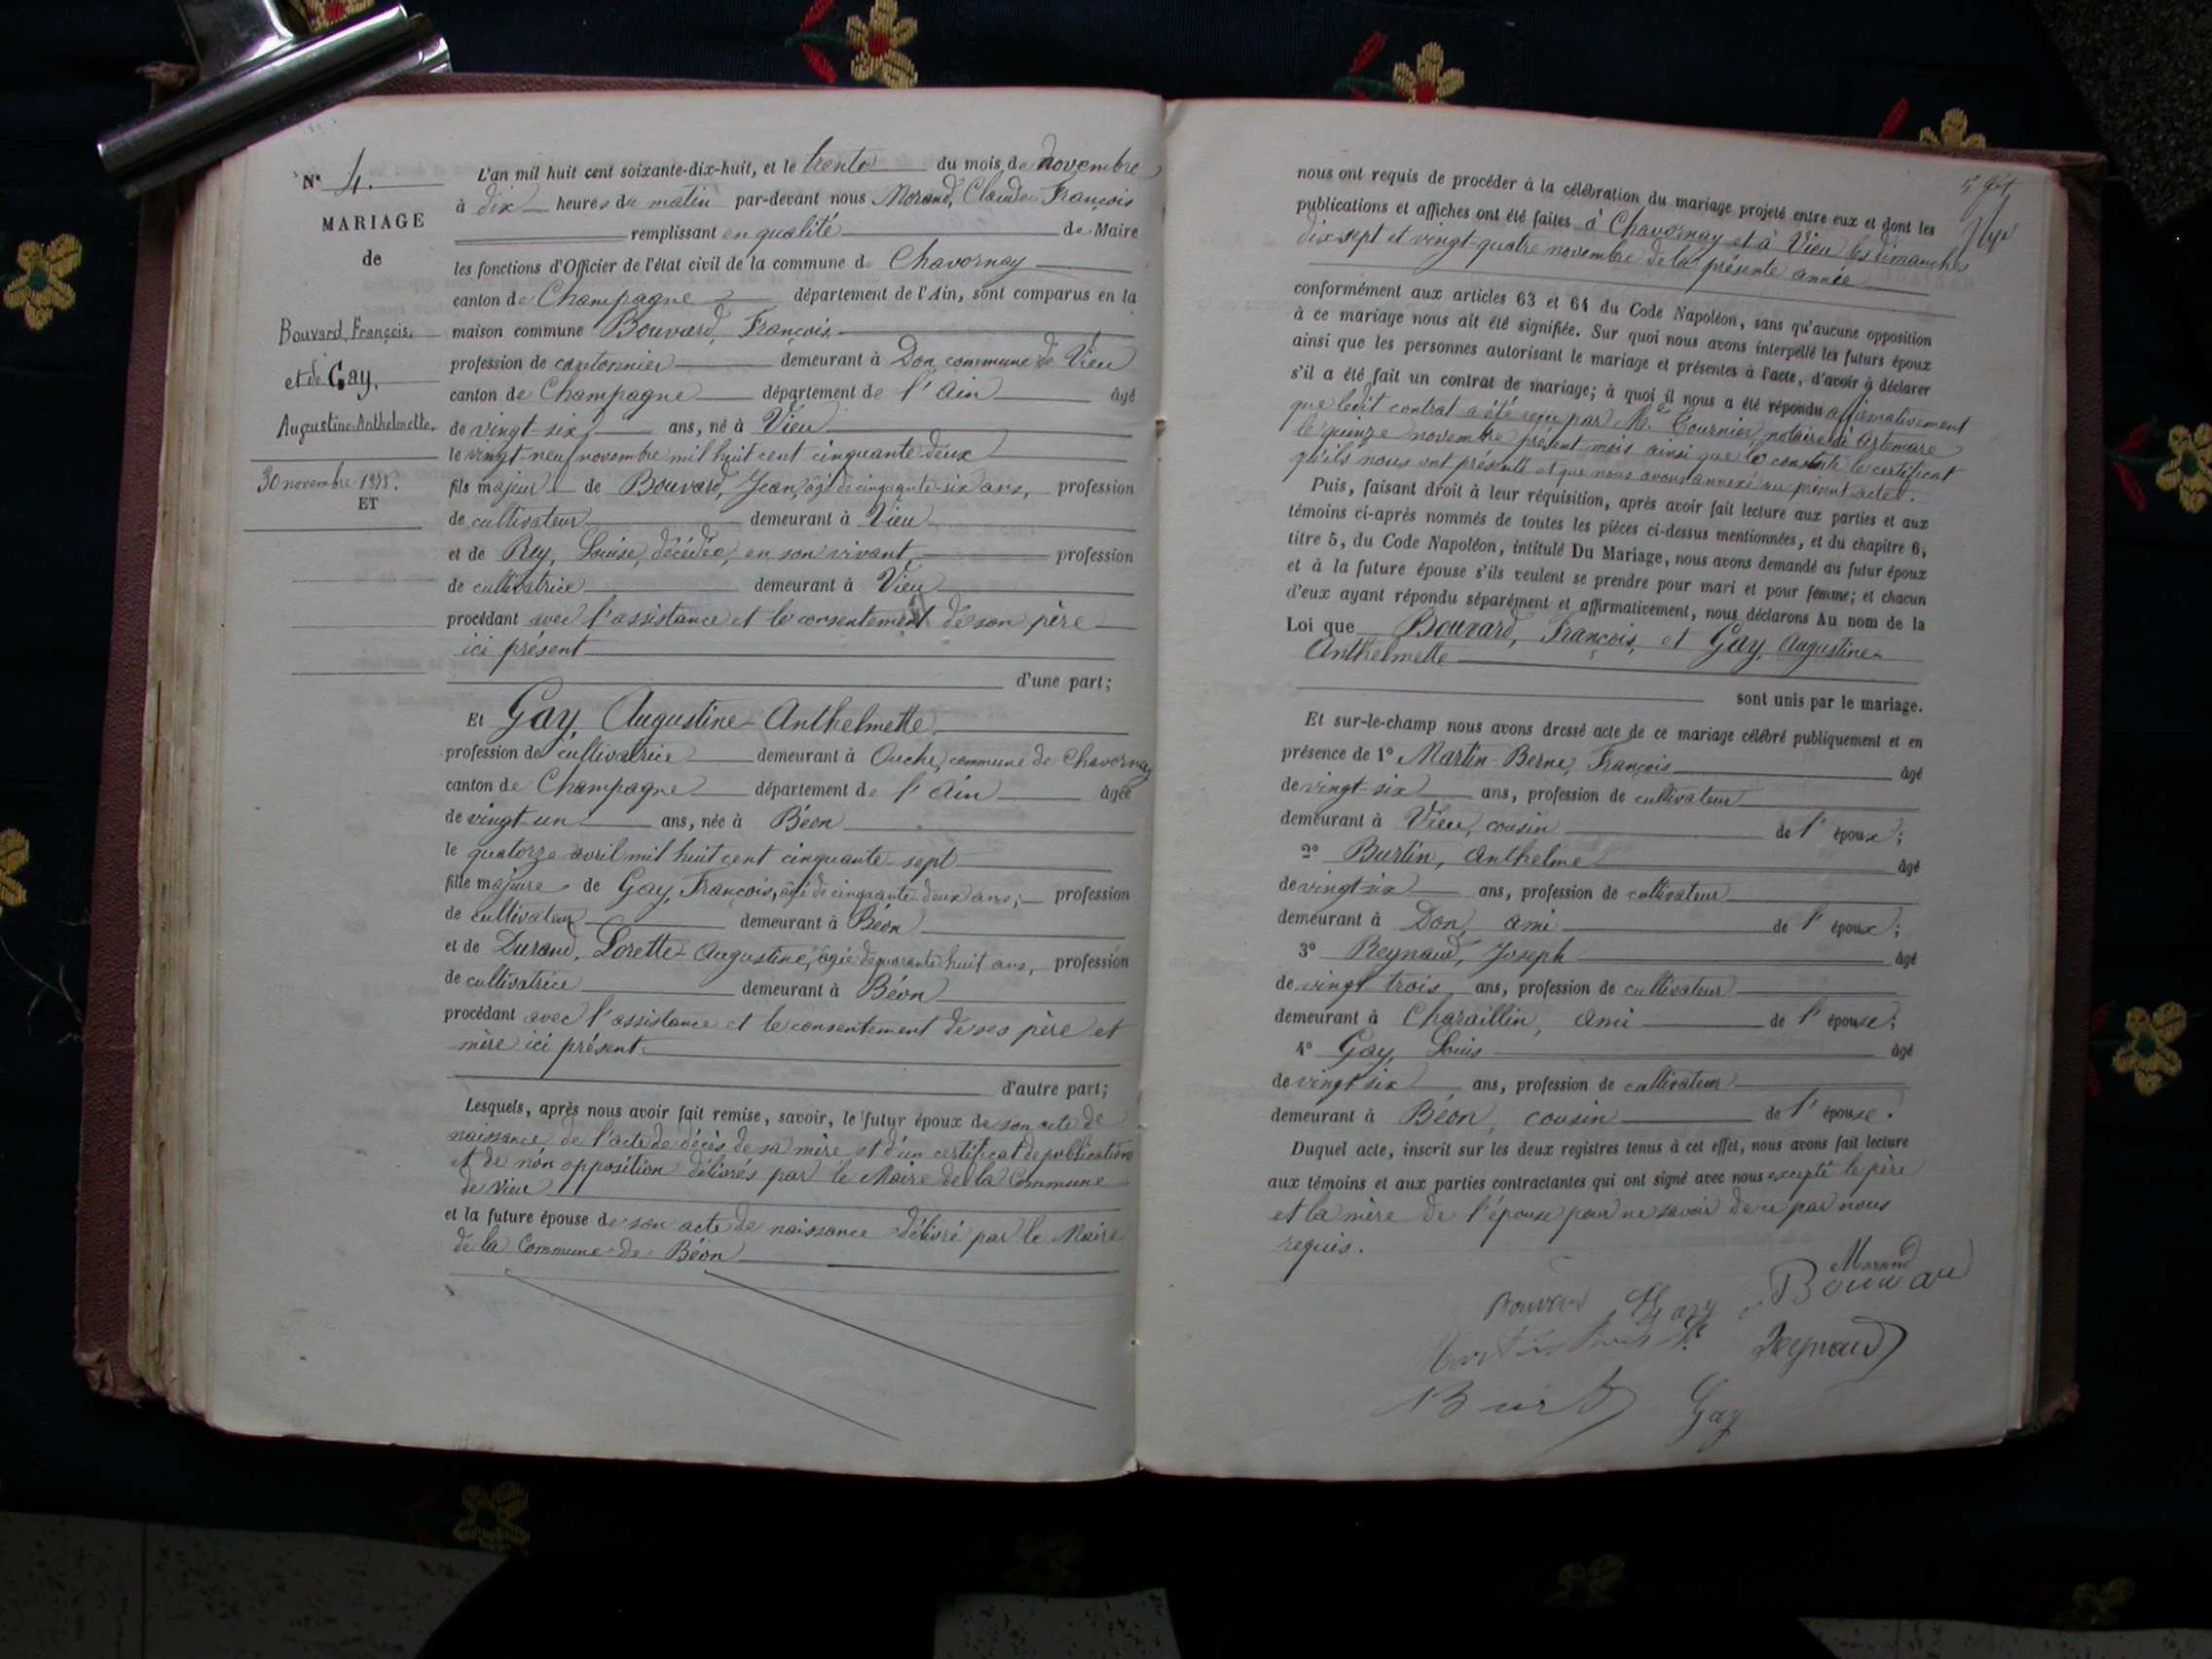 N° 4.
MARIAGE
de
Bouvard, François,
et de Gay,
Augustine-Anthelmette,
30 novembre 1878.
ET
L'an mil huit cent soixante-dix-huit, et le trente du mois de novembre
à dix heures du matin par-devant nous Morand, Claude François
remplissant en qualité de Maire
les fonctions d'Officier de l'état civil de la commune de Chavornay
canton de Champagne département de l'Ain, sont comparus en la
maison commune Bouvard, François,
profession de cantonnier demeurant à Don, commune de Vieu
canton de Champagne département de l'Ain âgé
de vingt-six ans, né à Vieu
le vingt-neuf novembre mil huit cent cinquante-deux
fils majeur de Bouvard, Jean, âgé de cinquante-six ans, profession
de cultivateur demeurant à Vieu
et de Rey, Louise, décédée, en son vivant, profession
de cultivatrice demeurant à Vieu
procédant avec l'assistance et le consentement de son père
ici présent
d'une part;
Et Gay, Augustine-Anthelmette,
profession de cultivatrice demeurant à Ouche, commune de Chavornay
canton de Champagne département de l'Ain âgée
de vingt-un ans, née à Béon
le quatorze avril mil huit cent cinquante-sept
fille majeure de Gay, François, âgé de cinquante-deux ans, profession
de cultivateur demeurant à Béon
et de Durand, Lorette-Augustine, âgée de quarante-huit ans, profession
de cultivatrice demeurant à Béon
procédant avec l'assistance et le consentement de ses père et
mère ici présent
d'autre part;
Lesquels, après nous avoir fait remise, savoir, le futur époux de son acte de
naissance, de l'acte de décès de sa mère et d'un certificat de publication
et de non opposition délivrés par le Maire de la Commune
de Vieu
et la future épouse de son acte de naissance délivré par le Maire
de la Commune de Béon
nous ont requis de procéder à la célébration du mariage projeté entre eux et dont les
publications et affiches ont été faites à Chavornay et à Vieu les dimanches
dix-sept et vingt-quatre novembre de la présente année
conformément aux articles 63 et 64 du Code Napoléon, sans qu'aucune opposition
à ce mariage nous ait été signifiée. Sur quoi nous avons interpellé les futurs époux
ainsi que les personnes autorisant le mariage et présentes à l'acte, d'avoir à déclarer
s'il a été fait un contrat de mariage; à quoi il nous a été répondu affirmativement
que ledit contrat a été reçu par Me Cournier, notaire à Artemare
le quinze novembre présent mois ainsi que le constate le certificat
qu'ils nous ont présenté et que nous avons annexé au présent acte.
Puis, faisant droit à leur réquisition, après avoir fait lecture aux parties et aux
témoins ci-après nommés de toutes les pièces ci-dessus mentionnées, et du chapitre 6,
titre 5, du Code Napoléon, intitulé Du Mariage, nous avons demandé au futur époux
et à la future épouse s'ils veulent se prendre pour mari et pour femme; et chacun
d'eux ayant répondu séparément et affirmativement, nous déclarons Au nom de la
Loi que Bouvard, François, et Gay, Augustine-
Anthelmette
sont unis par le mariage.
Et sur-le-champ nous avons dressé acte de ce mariage célébré publiquement et en
présence de 1° Martin-Berne, François âgé
de vingt-six ans, profession de cultivateur
demeurant à Vieu, cousin de l'époux;
2° Burtin, Anthelme âgé
de vingt-six ans, profession de cultivateur
demeurant à Don, ami de l'époux;
3° Reynaud, Joseph âgé
de vingt-trois ans, profession de cultivateur
demeurant à Charaillin, ami de l'épouse;
4° Gay, Louis âgé
de vingt-six ans, profession de cultivateur
demeurant à Béon, cousin de l'épouse.
Duquel acte, inscrit sur les deux registres tenus à cet effet, nous avons fait lecture
aux témoins et aux parties contractantes qui ont signé avec nous excepté le père
et la mère de l'épouse pour ne savoir de ce par nous
requis.
Morand
Bouvard Gay Bouvard
Reynaud
Gay